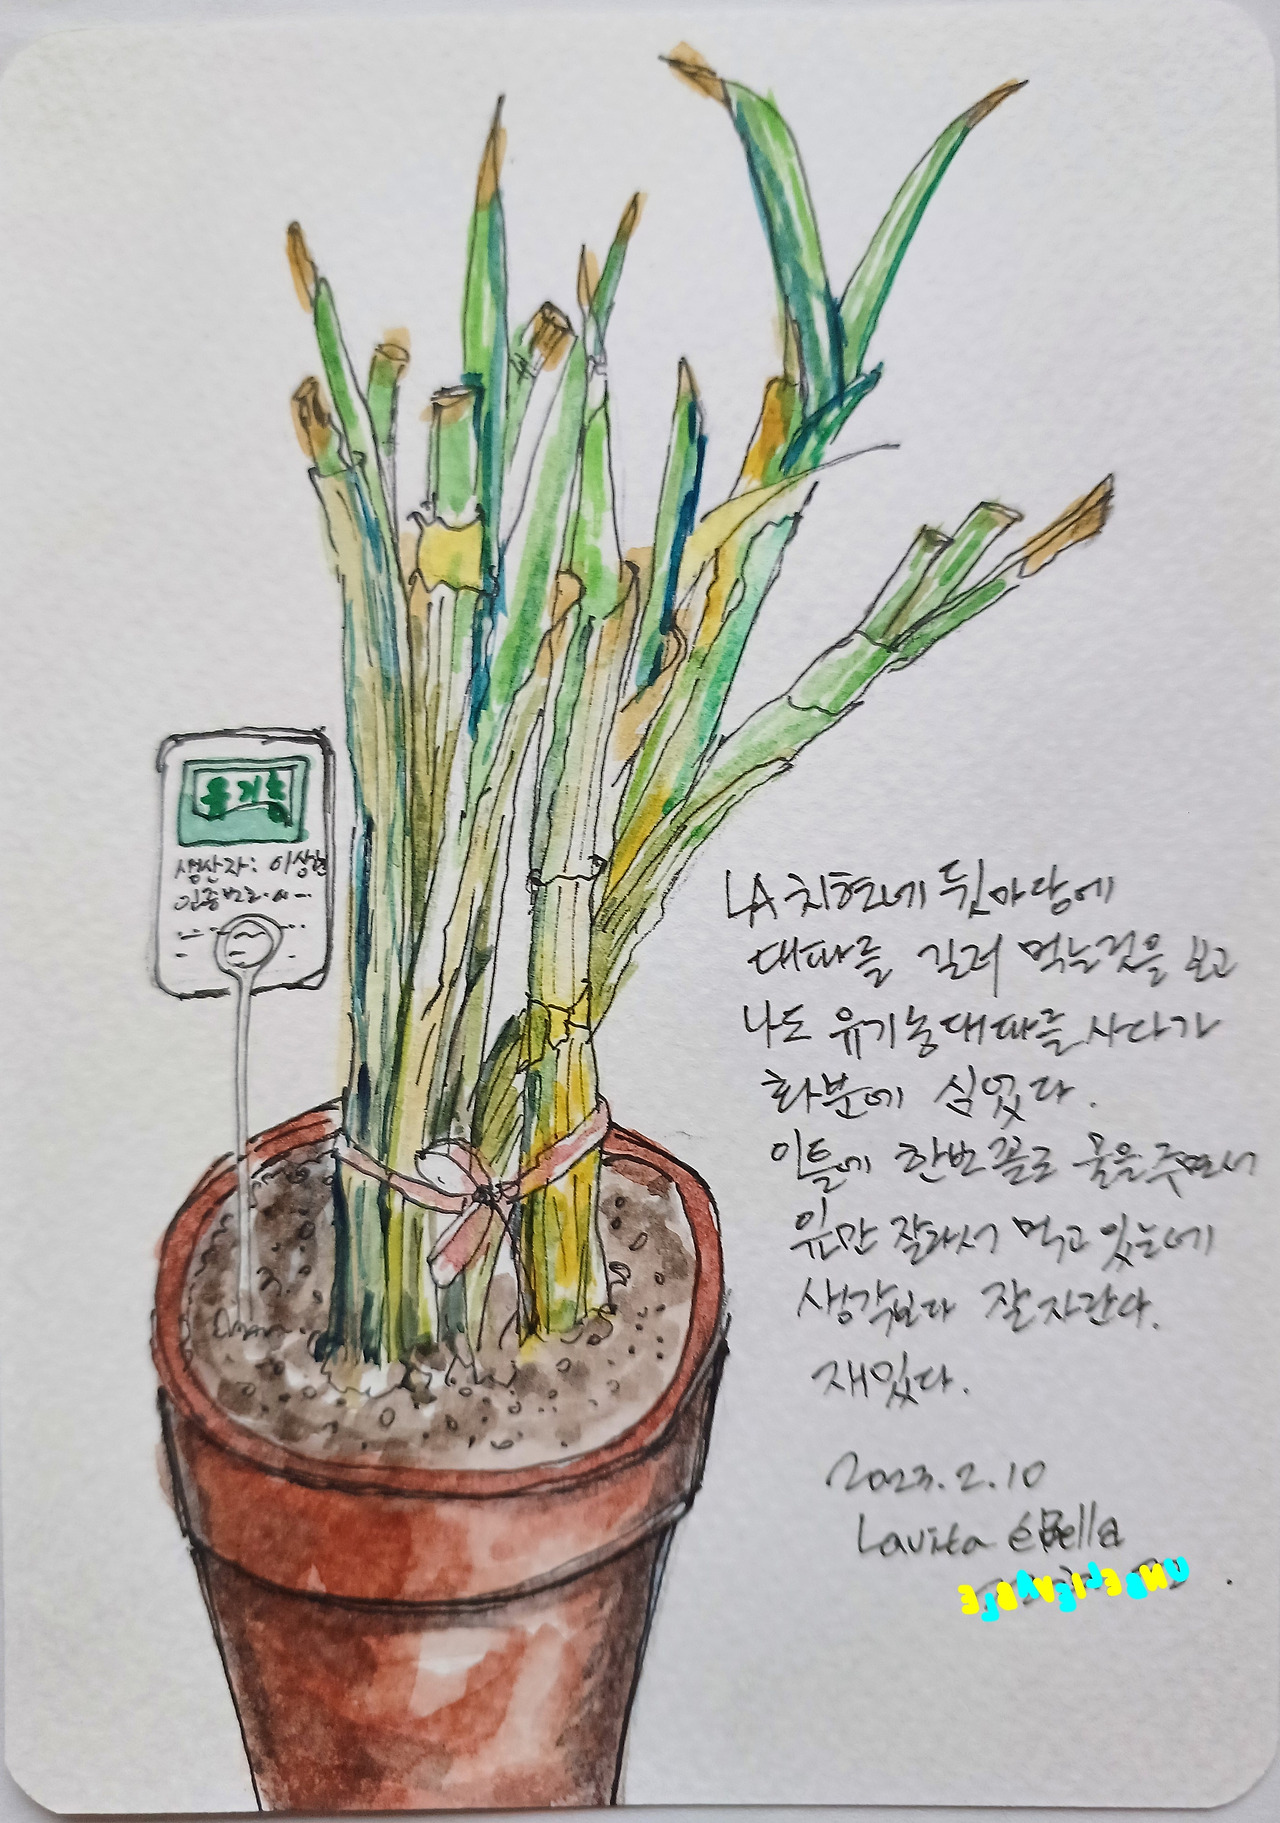 유기농
생산자: 이상현
인증번호
LA 치현네 뒷마당에
대파를 길러 먹는것을 보고
나도 유기농대파를 사다가
화분에 심었다.
이틀에 한번꼴로 물을주면서
잎만 잘라서 먹고있는데
생각보다 잘 자란다.
재밌다.
2023.2.10
Lavita é Bella
UNBELIEVABLE